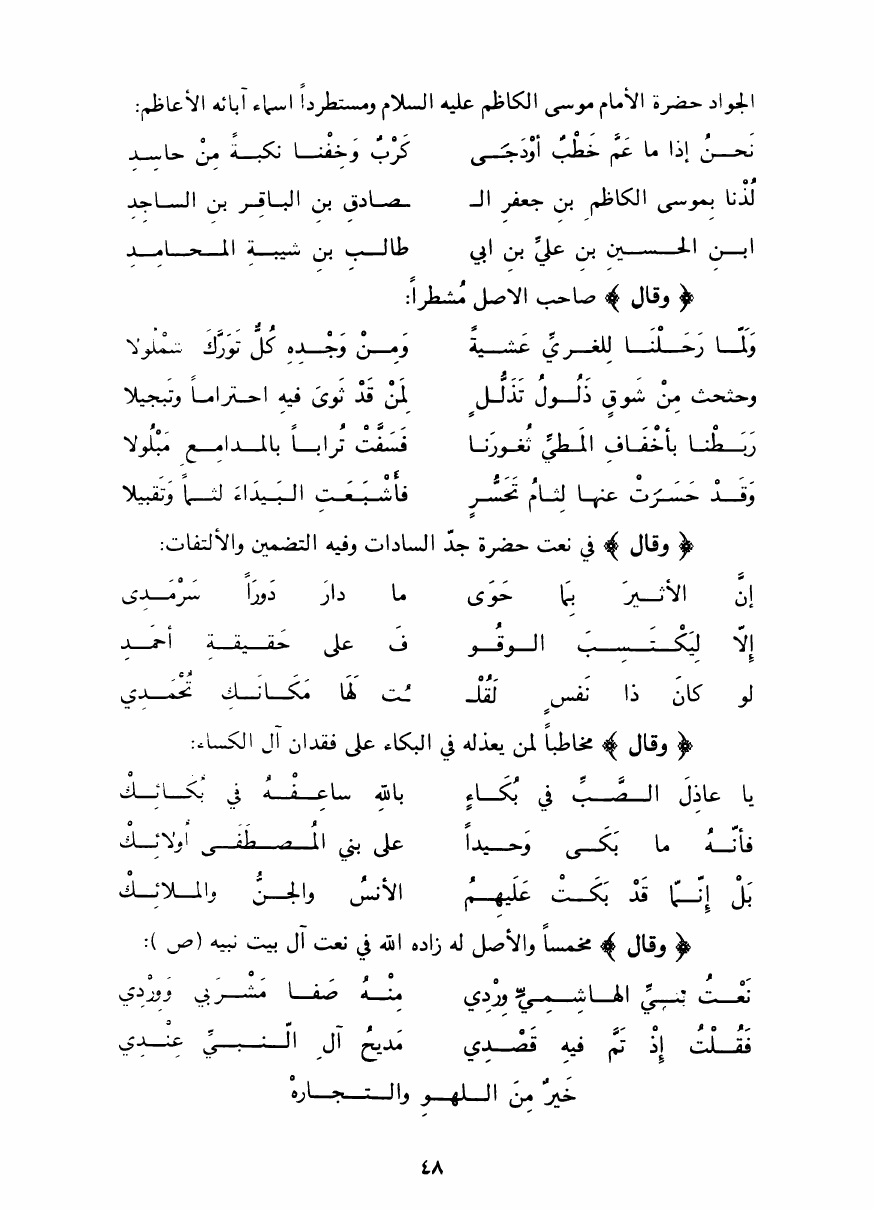 الجواد حضرة الأمام موسى الكاظم عليه السلام ومستطرداً اسماء آبائه الأعاظم:
نَحنُ إذا ما عَمَّ خَطْبٌ أوْدَجَى كَرْبٌ وَخِفْنا نكبةً مِنْ حاسِد
لُذْنا بِموسى الكاظم بن جعفرِ الـ ـصادق بن الباقر بن الساجد
ابن الحسين بن عليِّ بن ابي طالب بن شيبة المحامد
﴿ وقال ﴾ صاحب الاصل مُشطراً:
وَلَمّا رَحَلْنا للغريِّ عَشيةً وَمِنْ وَجْدِهِ كُلٌّ تَوَرَّكَ شملُولا
وحثحث مِنْ شَوقٍ ذَلُولُ تَذَلُّلٍ لِمَنْ قَدْ ثَوىَ فيه احتراماً وتَبجيلا
رَبَطْنا بأخْفَافِ المَطيِّ ثغورَنا فَسَفَّتْ تُراباً بالمدامعِ مَبْلُولا
وَقَدْ حَسَرَتْ عنها لثامُ تَحَسُّرٍ فأشْبَعَتِ البَيداءَ لثماً وَتَقبيلا
﴿ وقال ﴾ في نعت حضرة جدّ السادات وفيه التضمين والألتفات:
إنَّ الأثيرَ بمَا حَوَى ما دارَ دَورَاً سَرْمَدى
إلّا لِيَكْتَسِبَ الوقُو فَ على حَقيقةِ أحمَد
لو كانَ ذا نَفسٍ لَقُلْـ ـتُ لَهَا مَكَانَك تُحْمَدي
﴿ وقال ﴾ مخاطباً لمن يعذله في البكاء على فقدان آل الكساء:
يا عاذِلَ الصَّبِّ في بُكَاءٍ بالله ساعِفْهُ في بُكَائِكْ
فأنّهُ ما بَكَى وَحيداً على بني المُصطَفَى أولائِكْ
بَلْ إنَّمَا قَدْ بَكَتْ عَلَيهمُ الأنسُ والجنُّ والملائِكْ
﴿ وقال ﴾ مخمساً والأصل له زاده الله في نعت آل بيت نبيه (ص):
نَعْتُ نَبيِّ الهاشميِّ وِرْدِي مِنْهُ صَفا مَشْرَبي وَوِرْدِي
فَقُلْتُ إذْ تَمَّ فيهِ قَصْدِي مَديحُ آلِ النّبيِّ عِنْدِي
خَيرٌ مِنَ اللهوِ والتجارهْ
٤٨